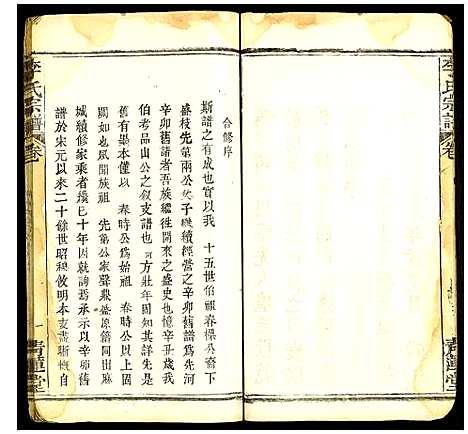 李氏宗譜
卷
合修序
斯譜之有成也實以我 十五世伯祖春操公賚下
盛枝先第兩公父子繼續經營之辛卯舊譜為先河
辛卯舊譜者吾族繼往開來之盛史也憶辛丑歲我
伯考品山公之敘支譜也 方壯年固知其詳先是
舊有墨本僅以 春時公為始祖 春時公以前
闕如也風聞族祖 先第公家聲鼎盛原籍同出麻
城續修家乘者機已十年因就詢焉承示以辛卯
譜於宋元以來二十餘世昭穆攸明本支晝晰慨自
李氏宗譜
卷一
一
青蓮堂